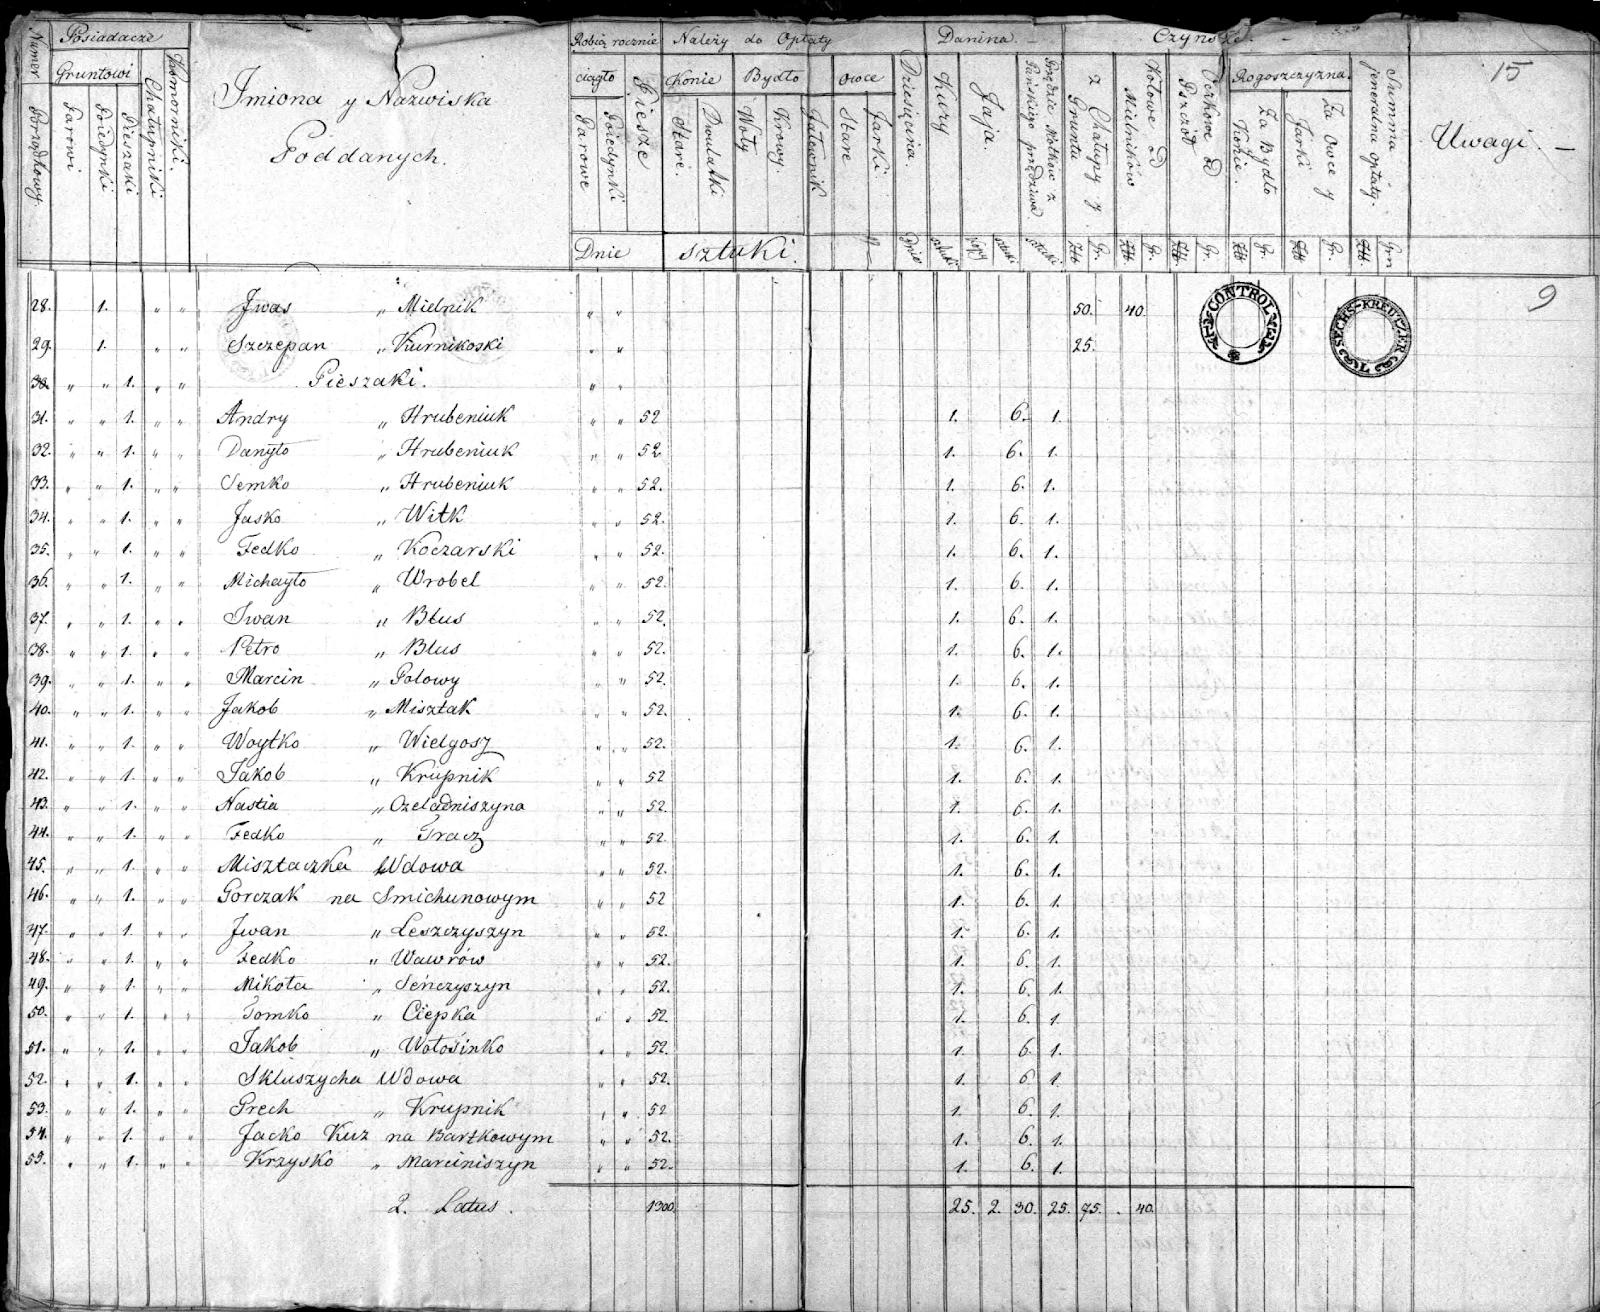 Numer Porządkowy
Posiadacze
Gruntowi
Parowi
Poiedynki
Pieszaki
Chałupniki
Komorniki.
Imiona y Nazwiska
Poddanych.
Robią rocznie
ciągło
Parowe
Poiedynki
Piesze
Dnie
Należy do Opłaty
Konie
Stare.
Dwulatki
Bydło
Woły
Krowy.
Jałownik
owce
Stare
Jarki.
sztuki.
Dziesięcina.
Dnie
Danina.
Kury
sztuki
Jaja.
kopy
sztuki
Przędzie Motkow z Pańskiego przędziwa
sztuki
Czynsze.
z Chałupy y Gruntu
Złł Gr.
Kołowe od Mielników
Złł Gr.
Oczkowe od Pszczół
Złł Gr.
Rogoszczyzna.
Za Bydło Konie.
Złł Gr.
Za Owce y Jarki
Złł Gr.
Summa jeneralna opłaty.
Złł. Grn
15
Uwagi. —
9
CONTROL
SECHS-KREUTZER
28. 1. „ „ Jwas „ Mielnik „ „ 50. 40.
29. 1. „ „ Szczepan „ Kurnikoski „ „ 25.
30. „ „ 1. „ „ Pieszaki. „ „
31. „ „ 1. „ „ Andry „ Hrubeniuk „ „ 52 1. 6. 1.
32. „ „ 1. „ „ Danyło „ Hrubeniuk „ „ 52. 1. 6. 1.
33. „ „ 1. „ „ Semko „ Hrubeniuk „ „ 52. 1. 6. 1.
34. „ „ 1. „ „ Jasko „ Witk „ „ 52. 1. 6. 1.
35. „ „ 1. „ „ Fedko „ Koczarski „ „ 52. 1. 6. 1.
36. „ „ 1. „ „ Michayło „ Wrobel „ „ 52. 1. 6. 1.
37. „ „ 1. „ „ Iwan „ Błus „ „ 52. 1. 6. 1.
38. „ „ 1. „ „ Petro „ Blus „ „ 52. 1. 6. 1.
39. „ „ 1. „ „ Marcin „ Polowy „ „ 52. 1. 6. 1.
40. „ „ 1. „ „ Jakob „ Misztak „ „ 52. 1. 6. 1.
41. „ „ 1. „ „ Woytko „ Wielgosz „ „ 52. 1. 6. 1.
42. „ „ 1. „ „ Jakob „ Krupnik „ „ 52 1. 6. 1.
43. „ „ 1. „ „ Nastia „ Czeladniszyna „ „ 52. 1. 6. 1.
44. „ „ 1. „ „ Fedko „ Tracz „ „ 52. 1. 6. 1.
45. „ „ 1. „ „ Misztaczka Wdowa „ „ 52. 1. 6. 1.
46. „ „ 1. „ „ Gorczak na Smichunowym „ „ 52 1. 6. 1.
47. „ „ 1. „ „ Jwan „ Leszczyszyn „ „ 52. 1. 6. 1.
48. „ „ 1. „ „ Fedko „ Wawrów „ „ 52. 1. 6. 1.
49. „ „ 1. „ „ Mikoła „ Seńczyszyn „ „ 52. 1. 6. 1.
50. „ „ 1. „ „ Tomko „ Ciepka „ „ 52. 1. 6. 1.
51. „ „ 1. „ „ Jakob „ Wołosinko „ „ 52. 1. 6. 1.
52. „ „ 1. „ „ Skluszycha Wdowa „ „ 52. 1. 6 1.
53. „ „ 1. „ „ Grech „ Krupnik „ „ 52 1. 6. 1.
54. „ „ 1. „ „ Jacko Kuz na Bartkowym „ „ 52. 1. 6. 1.
55. „ „ 1. „ „ Krzysko „ Marciniszyn „ „ 52. 1. 6. 1.
2. Latus. 1300. 25. 2. 30. 25. 75. . 40.